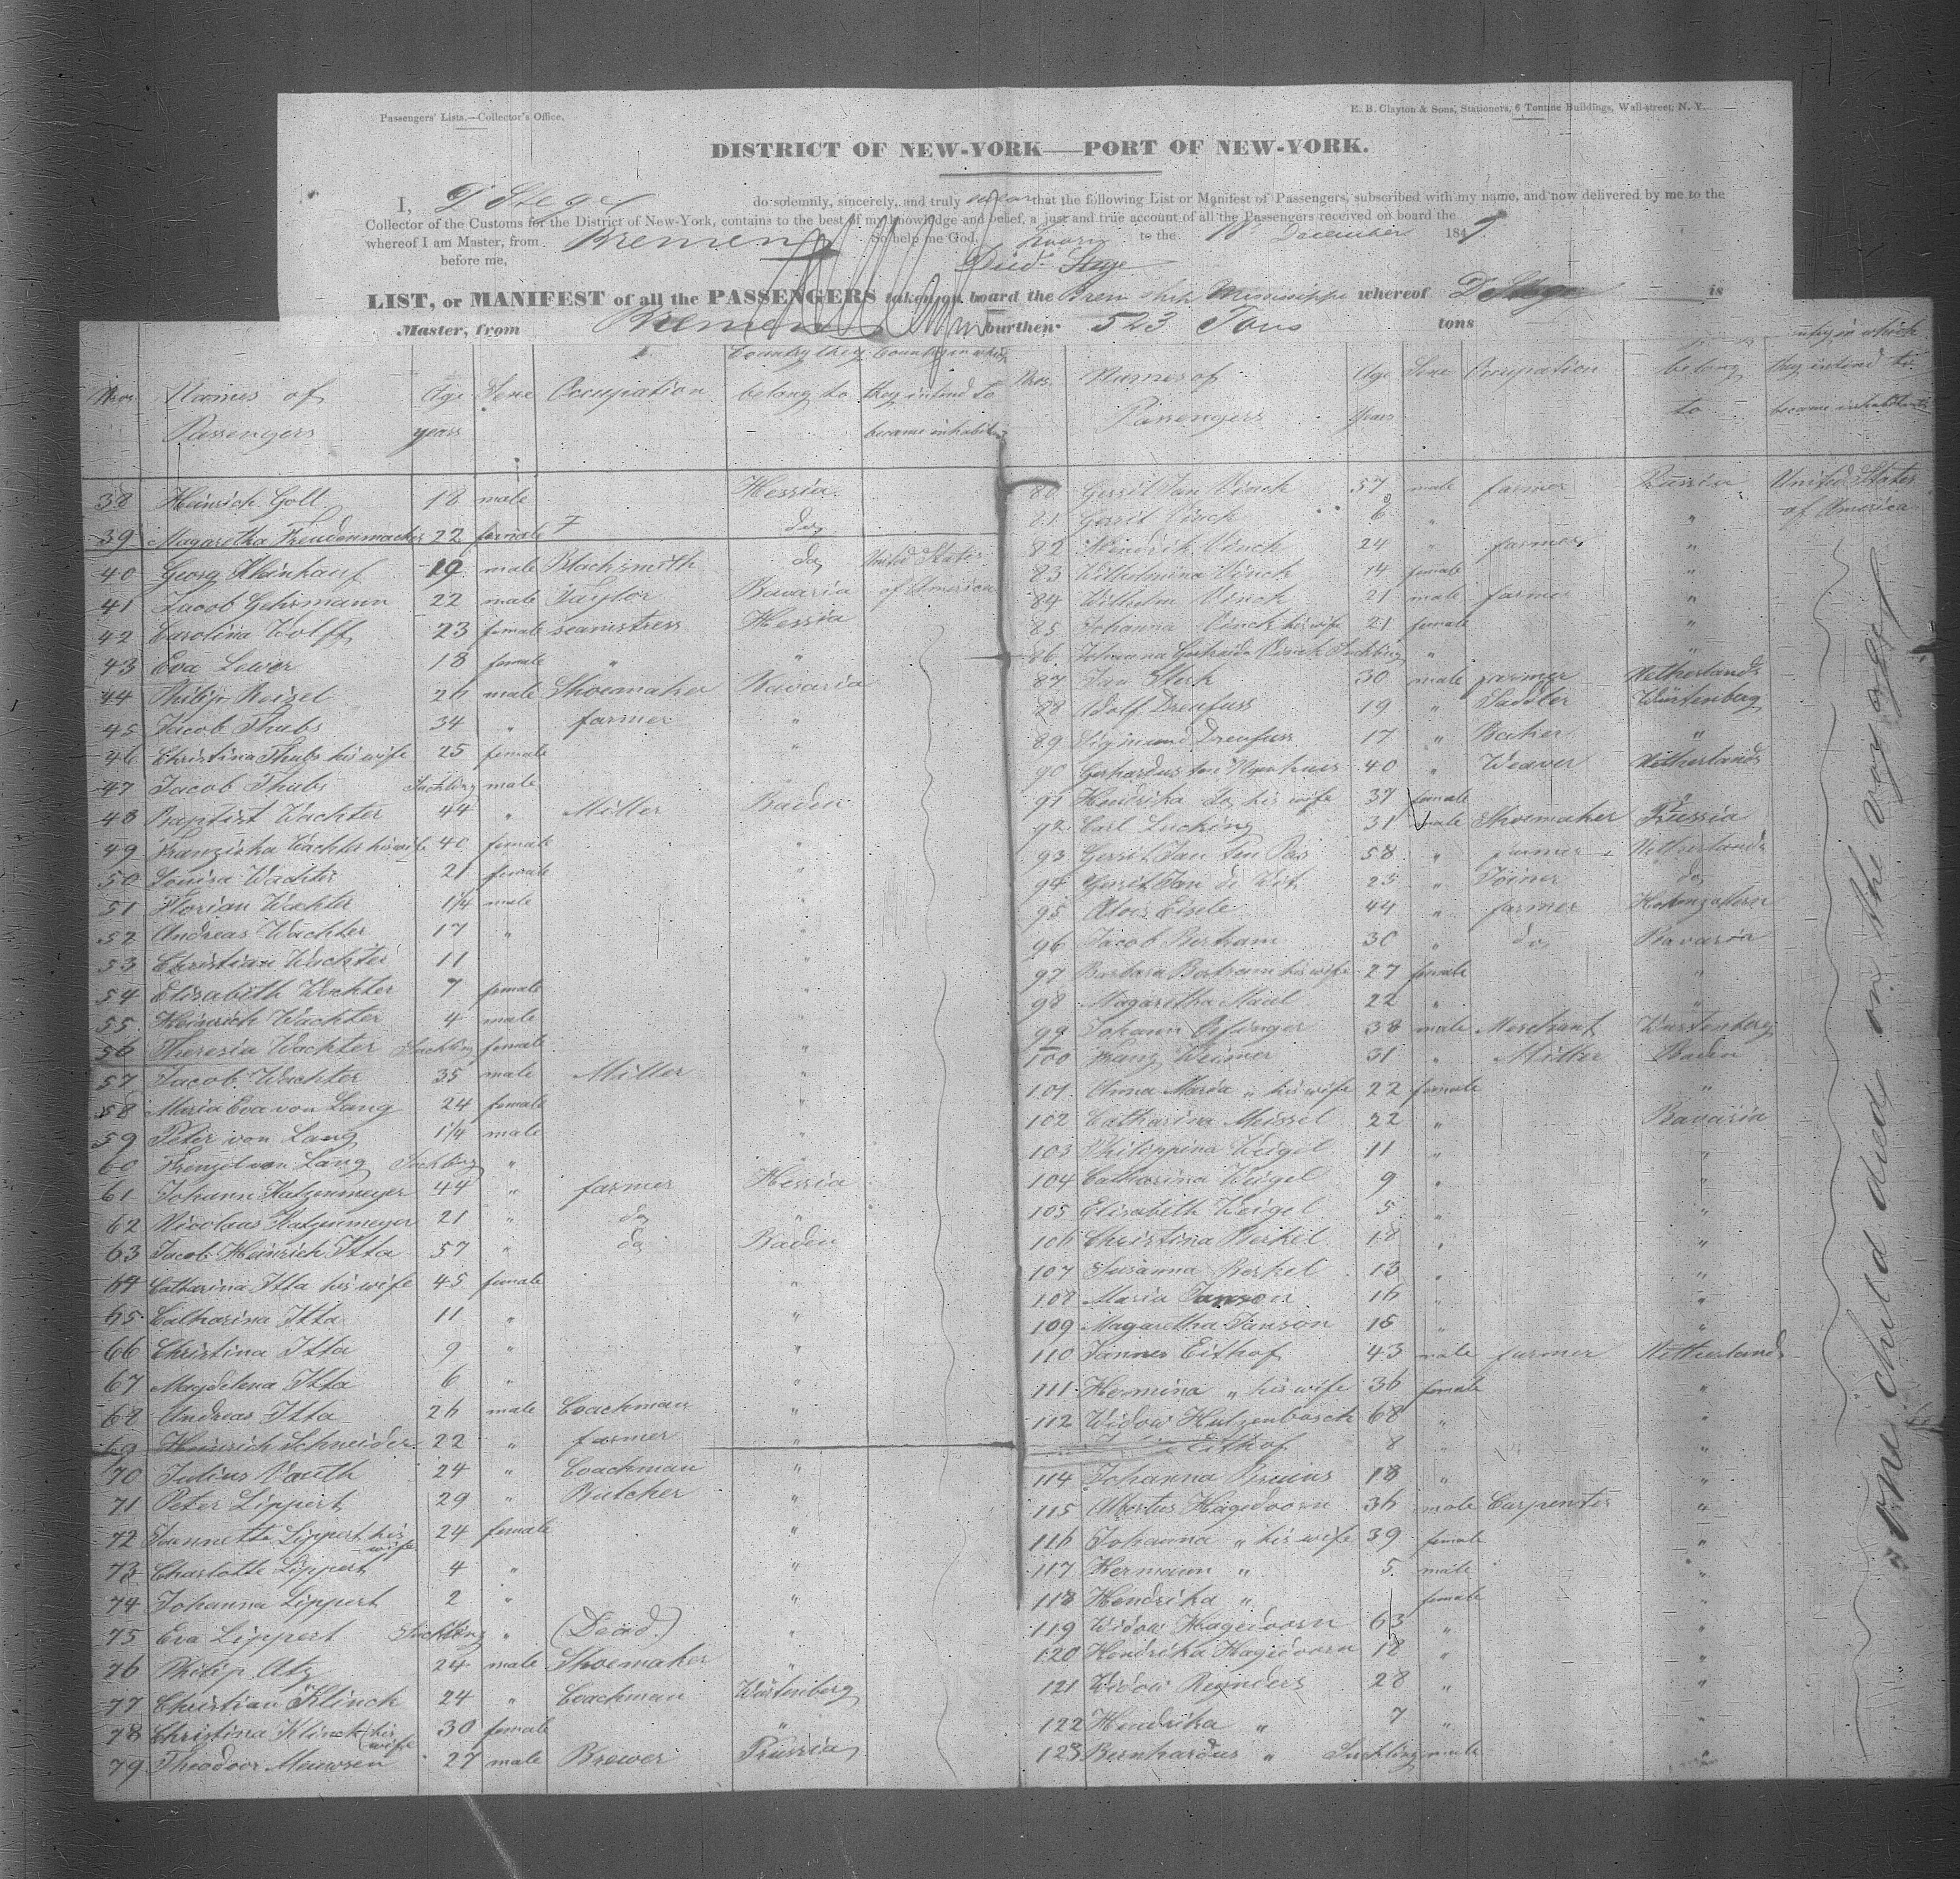 Passengers' Lists.—Collector's Office.
E. B. Clayton & Sons, Stationers, 6 Tontine Buildings, Wall-street, N. Y.
DISTRICT OF NEW-YORK——PORT OF NEW-YORK.
I, D Stege do solemnly, sincerely, and truly swear that the following List or Manifest of Passengers, subscribed with my name, and now delivered by me to the
Collector of the Customs for the District of New-York, contains to the best of my knowledge and belief, a just and true account of all the Passengers received on board the
whereof I am Master, from Bremen So help me God. Sworn to the 18 December 1847
before me, Died. Stege
LIST, or MANIFEST of all the PASSENGERS taken on board the Brem ship Mississippi whereof D Stege is
Master, from Bremen burthen 523 Tons tons
Nros Names of Passengers Age years Sexe Occupation Country they belong to Country in which they intend to become inhabit
38 Heinrich Goll 18 male Hessia
39 Magaretha Freudenmacher 22 female do
40 Georg Kleinkauf 19 male Blacksmith do United States
41 Jacob Gehrmann 22 male Taylor Bavaria of America
42 Carolina Wolff 23 female seamstress Hessia
43 Eva Lewer 18 female " "
44 Philip Reizel 26 male Shoemaker Bavaria
45 Jacob Thubs 34 " farmer "
46 Christina Thubs his wife 25 female "
47 Jacob Thubs Suckling male
48 Baptist Wachter 44 " Miller Baden
49 Franziska Wachter his wife 40 female "
50 Louisa Wachter 21 female "
51 Florian Wachter 1/4 male "
52 Andreas Wachter 17 " "
53 Christian Wachter 11 "
54 Elisabeth Wachter 7 female "
55 Heinrich Wachter 4 male "
56 Theresia Wachter Suckling female "
57 Jacob Wachter 35 male Miller "
58 Maria Eva von Lang 24 female "
59 Peter von Lang 1/4 male "
60 Frenzel von Lang Suckling " "
61 Johann Katzenmeyer 44 " farmer Hessia
62 Nicolaus Katzenmeyer 21 " do "
63 Jacob Heinrich Itta 57 " do Baden
64 Catharina Itta his wife 45 female "
65 Catharina Itta 11 " "
66 Christina Itta 9 " "
67 Magdelena Itta 6 " "
68 Andreas Itta 26 male Coachman "
69 Heinrich Schneider 22 " farmer "
70 Julius Vauth 24 " Coachman "
71 Peter Lippert 29 " Butcher "
72 Jannette Lippert his wife 24 female "
73 Charlotte Lippert 4 " "
74 Johanna Lippert 2 " "
75 Eva Lippert Suckling " (Dead.) "
76 Philip Atz 24 male Shoemaker "
77 Christian Klinck 24 " Coachman Würtenberg
78 Christina Klinck (his wife 30 female "
79 Theodoor Meuwsen 27 male Brewer Prussia
Nros. Names of Passengers Age Years Sexe Occupation belong to they intend to become inhabitants
80 Gerrit Jan Vinck 57 male farmer Prussia United States
81 Gerrit Vinck 8 " " of America
82 Hendrik Vinck 24 " farmer "
83 Wilhelmina Vinck 14 female "
84 Wilhelm Vinck 21 male farmer "
85 Johanna Vinck his wife 21 female "
86 Johanna Gertruida Vinck Suckling " "
87 Jan Sterk 30 male farmer Netherlands
88 Adolf Dreufuss 19 " Saddler Würtenberg
89 Sigmund Dreufuss 17 " Baker "
90 Gerhardus ten Nyenhuis 40 " Weaver Netherlands
91 Hendrika do his wife 37 female
92 Carl Lucking 31 male Shoemaker Prussia
93 Gerrit Jan ten Pas 58 " farmer Netherlands
94 Gerrit Jan de Wit 25 " Joiner do
95 Alois Eisele 44 " farmer Hohenzollern
96 Jacob Bertram 30 " do Bavaria
97 Barbara Bertram his wife 27 female "
98 Magaretha Maul 22 " "
99 Johann 38 male Merchant Wurtenberg
100 Franz Weimer 31 " Miller Baden
101 Anna Maria " his wife 22 female "
102 Catharina Meissel 22 " Bavaria
103 Philippina Weigel 11 " "
104 Catharina Weigel 9 " "
105 Elisabeth Weigel 5 " "
106 Christina Berkel 18 " "
107 Susanna Berkel 13 " "
108 Maria Janson 16 " "
109 Magaretha Janson 15 " "
110 Jannes Eithof 43 male farmer Netherlands
111 Hermina " his wife 36 female "
112 Widow Hulzenbosch 68 " "
Eithof 8 " "
114 Johanna Bruins 18 " "
115 Albertus Hagedoorn 36 male Carpenter "
116 Johanna " his wife 39 female "
117 Hermann " 5 male "
118 Hendrika " female "
119 Widow Hagedoorn 63 " "
120 Hendrika Hagedoorn 18 " "
121 Widow Reynders 28 " "
122 Hendrika " 7 " "
123 Bernhardus " Suckling male "
One child died on the voyage